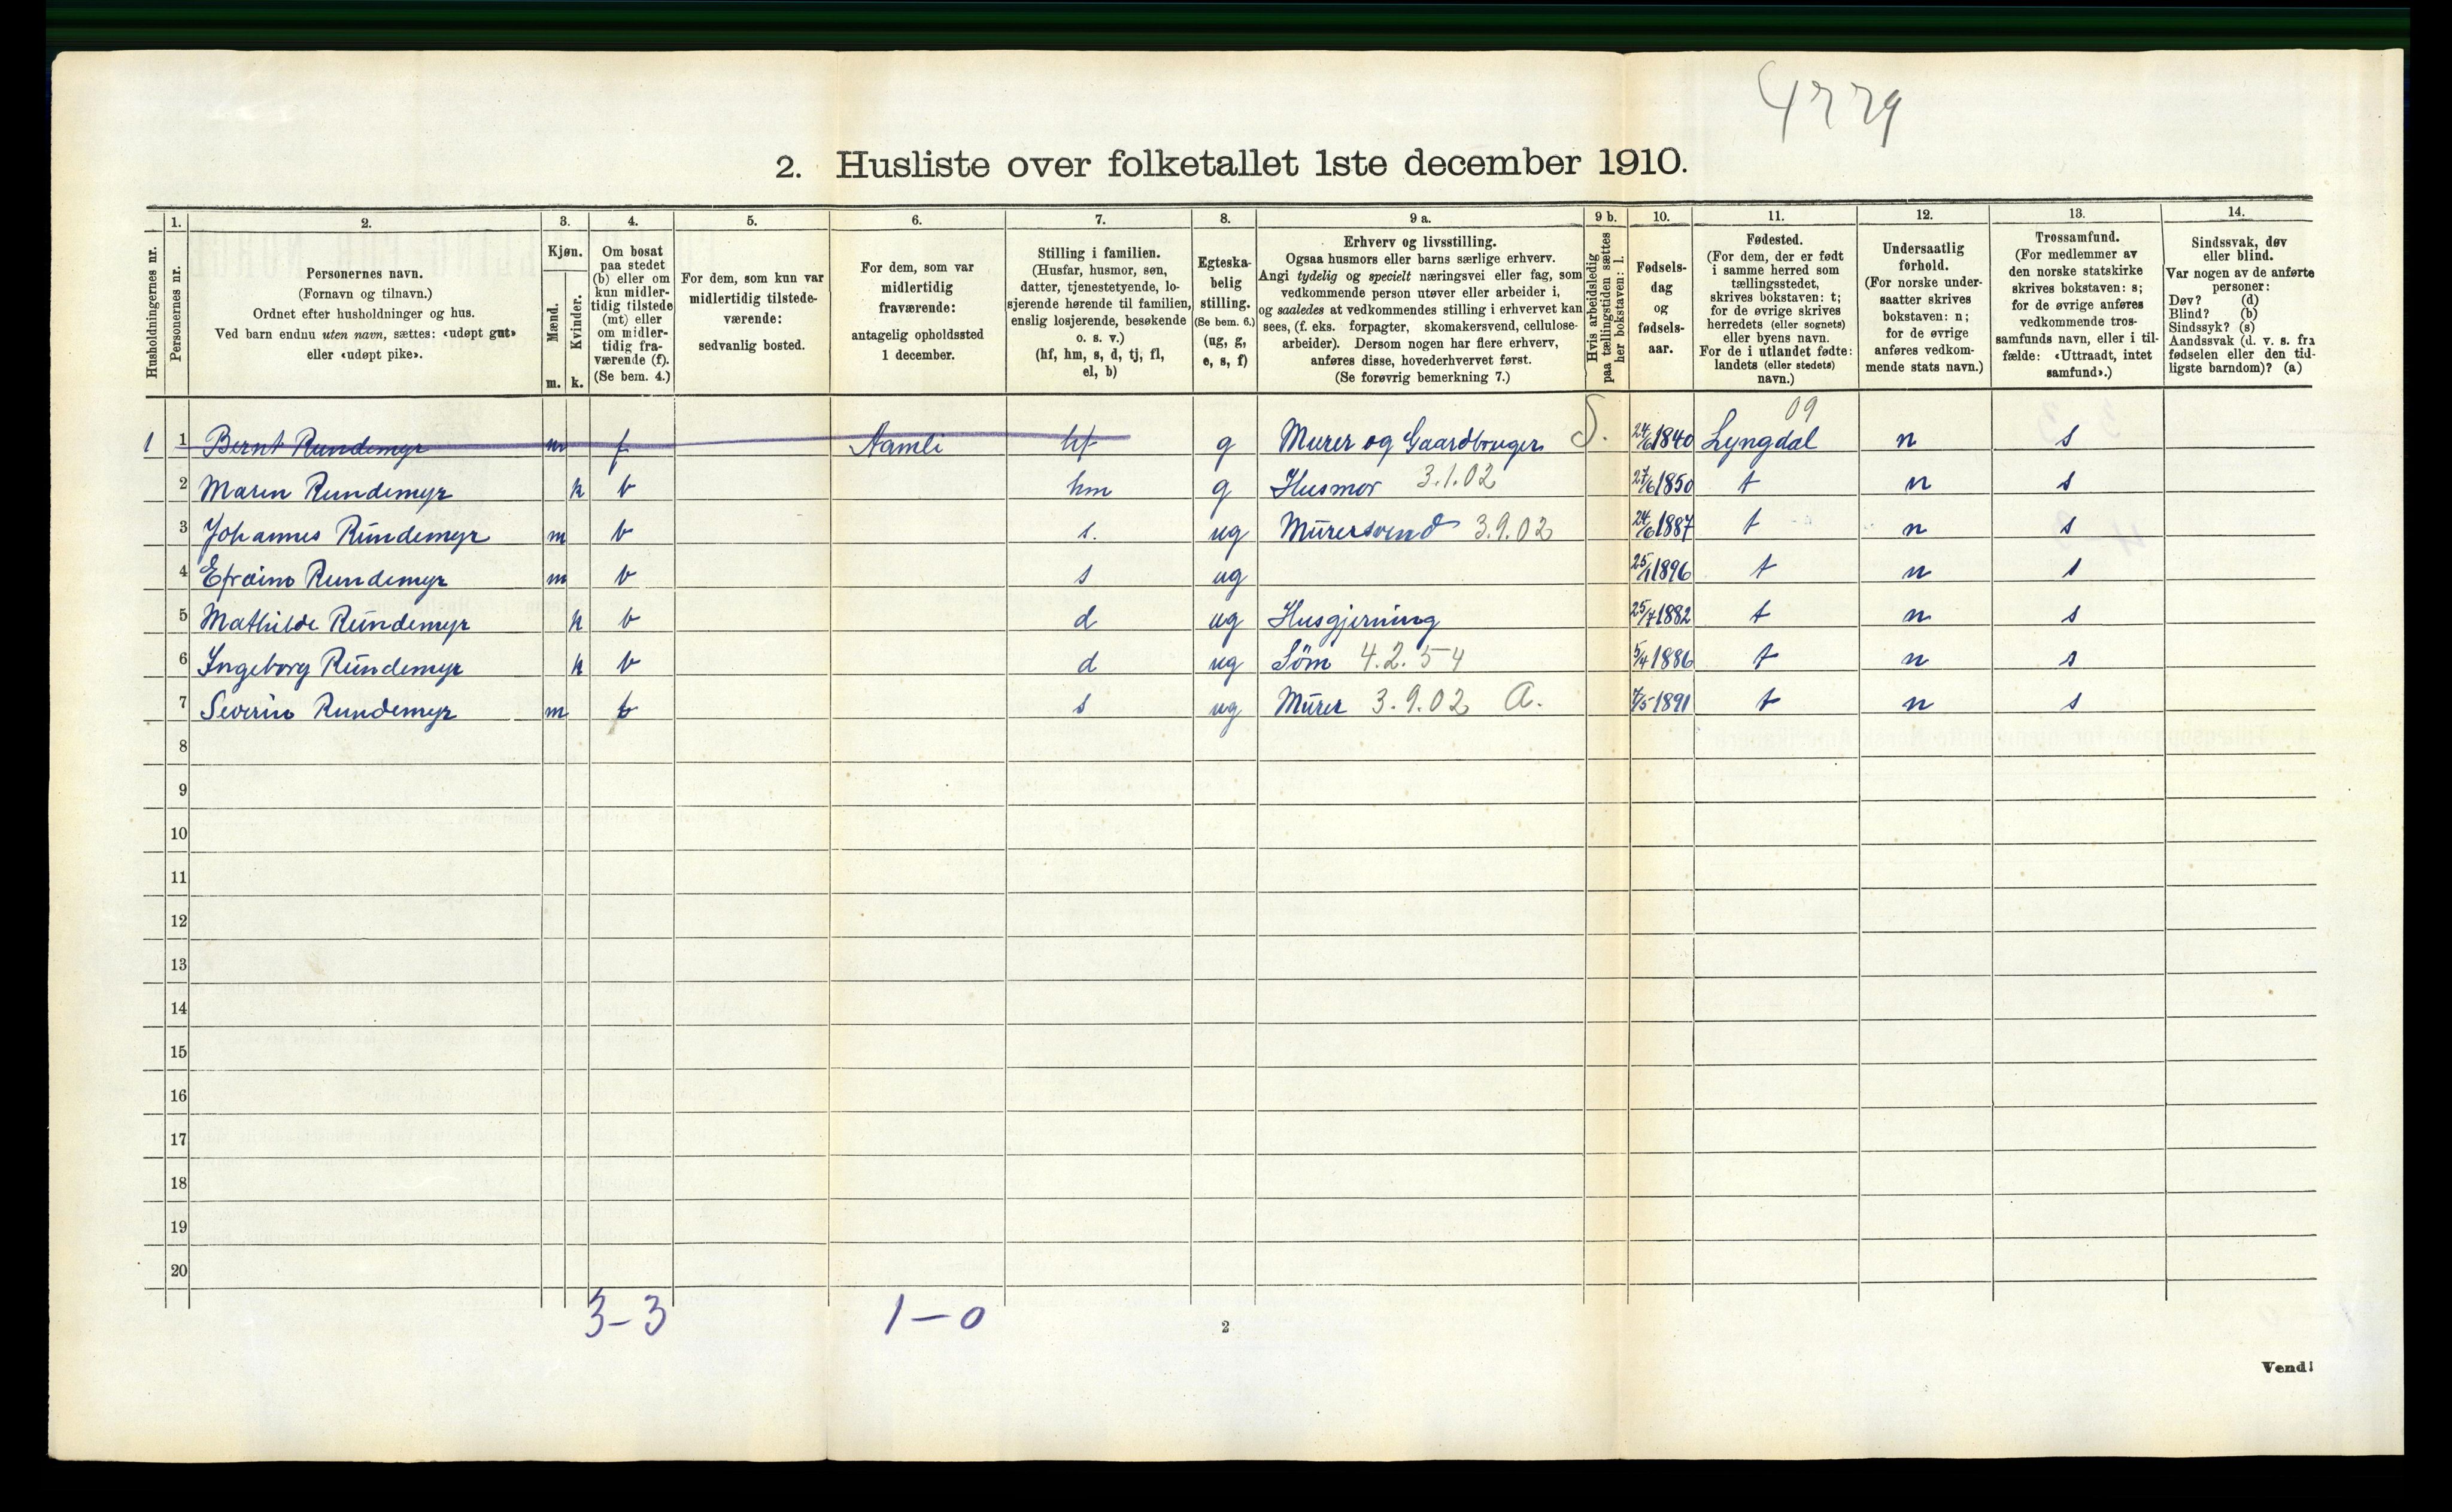 4779
2. Husliste over folketallet 1ste december 1910.
Husholdningernes nr.
1.
Personernes nr.
2.
Personernes navn.
(Fornavn og tilnavn.)
Ordnet efter husholdninger og hus.
Ved barn endnu uten navn, sættes: «udøpt gut»
eller «udøpt pike».
3.
Kjøn.
Mænd.
Kvinder.
m. k.
4.
Om bosat
paa stedet
(b) eller om
kun midler-
tidig tilstede
(mt) eller
om midler-
tidig fra-
værende (f).
(Se bem. 4.)
5.
For dem, som kun var
midlertidig tilstede-
værende:
sedvanlig bosted.
6.
For dem, som var
midlertidig
fraværende:
antagelig opholdssted
1 december.
7.
Stilling i familien.
(Husfar, husmor, søn,
datter, tjenestetyende, lo-
sjerende hørende til familien,
enslig losjerende, besøkende
o. s. v.)
(hf, hm, s, d, tj, fl,
el, b)
8.
Egteska-
belig
stilling.
(Se bem. 6.)
(ug, g,
e, s, f)
9 a.
Erhverv og livsstilling.
Ogsaa husmors eller barns særlige erhverv.
Angi tydelig og specielt næringsvei eller fag, som
vedkommende person utøver eller arbeider i,
og saaledes at vedkommendes stilling i erhvervet kan
sees, (f. eks. forpagter, skomakersvend, cellulose-
arbeider). Dersom nogen har flere erhverv,
anføres disse, hovederhvervet først.
(Se forøvrig bemerkning 7.)
9 b.
Hvis arbeidsledig
paa tællingstiden sættes
her bokstaven: l.
10.
Fødsels-
dag
og
fødsels-
aar.
11.
Fødested.
(For dem, der er født
i samme herred som
tællingsstedet,
skrives bokstaven: t;
for de øvrige skrives
herredets (eller sognets)
eller byens navn.
For de i utlandet fødte:
landets (eller stedets)
navn.)
12.
Undersaatlig
forhold.
(For norske under-
saatter skrives
bokstaven: n;
for de øvrige
anføres vedkom-
mende stats navn.)
13.
Trossamfund.
(For medlemmer av
den norske statskirke
skrives bokstaven: s;
for de øvrige anføres
vedkommende tros-
samfunds navn, eller i til-
fælde: «Uttraadt, intet
samfund».)
14.
Sindssvak, døv
eller blind.
Var nogen av de anførte
personer:
Døv? (d)
Blind? (b)
Sindssyk? (s)
Aandssvak (d. v. s. fra
fødselen eller den tid-
ligste barndom)? (a)
09
1 1 Bernt Rundemyr m f Aamli hf g Murer og Gaardbruger S. 24/6 1840 Lyngdal n s
2 Maren Rundemyr k b hm g Husmor 3.1.02 27/6 1850 t n s
3 Johannes Rundemyr m b s. ug Murersvend 3.9.02 24/6 1887 t n s
4 Efraim Rundemyr m b s ug 25/1 1896 t n s
5 Mathilde Rundemyr k b d ug Husgjerning 25/7 1882 t n s
6 Ingeborg Rundemyr k b d ug Søm 4.2.54 5/4 1886 t n s
7 Severin Rundemyr m b s ug Murer 3.9.02 a. 7/5 1891 t n s
8
9
10
11
12
13
14
15
16
17
18
19
20
3-3 1-0
2
Vend!